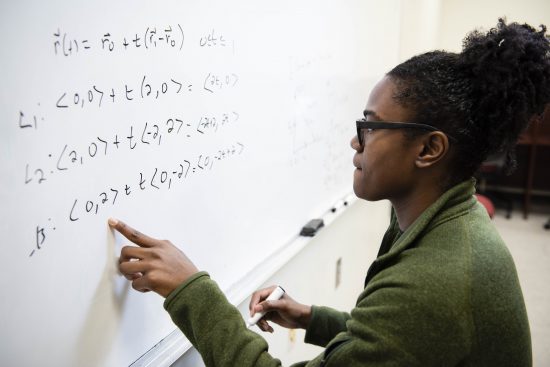 r⃗(t) = r⃗₀ + t(r⃗₁-r⃗₀) 0≤t≤1
L₁: <0,0> + t<2,0> = <2t,0>
L₂: <2,0> + t<-2,2> = <-2t+2, 2t>
<0,2> + t<0,-2> = <0,-2t+2>